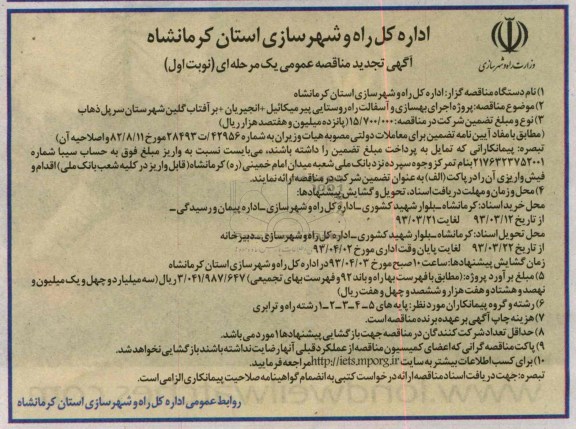 اداره کل راه و شهرسازی استان کرمانشاه
وزارت راه و شهرسازی
آگهی تجدید مناقصه عمومی یک مرحله ای (نوبت اول)
۱) نام دستگاه مناقصه گزار: اداره کل راه و شهرسازی استان کرمانشاه
۲) موضوع مناقصه: پروژه اجرای بهسازی و آسفالت راه روستایی پیرمیکائیل + انجیریان + برآفتاب گلین شهرستان سرپل ذهاب
۳) نوع و مبلغ تضمین شرکت در مناقصه: ۱۵/۷۰۰/۰۰۰ (پانزده میلیون و هفتصد هزار ریال)
(مطابق با مفاد آیین نامه تضمین برای معاملات دولتی مصوبه هیات وزیران به شماره ۴۲۹۵۶/ت۲۸۴۹۳ مورخ ۸۲/۸/۱۱ و اصلاحیه آن)
تبصره: پیمانکارانی که تمایل به پرداخت مبلغ تضمین را داشته باشند، می بایست نسبت به واریز مبلغ فوق به حساب سیبا شماره
۲۱۷۶۴۴۳۷۵۲۰۰۱ بنام تمرکز وجوه سپرده نزد بانک ملی شعبه میدان امام خمینی (ره) کرمانشاه (قابل واریز در کلیه شعب بانک ملی) اقدام و
فیش واریزی آن را در پاکت (الف) به عنوان تضمین شرکت در مناقصه ارائه نمایند.
۴) محل و زمان و مهلت دریافت اسناد، تحویل و گشایش پیشنهادها:
محل خرید اسناد: کرمانشاه ـ بلوار شهید کشوری ـ اداره کل راه و شهرسازی ـ اداره پیمان و رسیدگی ـ
از تاریخ ۹۳/۰۳/۱۲ لغایت ۹۳/۰۳/۲۱
محل تحویل اسناد: کرمانشاه ـ بلوار شهید کشوری ـ اداره کل راه و شهرسازی ـ دبیرخانه
از تاریخ ۹۳/۰۳/۲۲ لغایت پایان وقت اداری مورخ ۹۳/۰۴/۰۲
زمان گشایش پیشنهادها: ساعت ۱۰ صبح مورخ ۹۳/۰۴/۰۳ در اداره کل راه و شهرسازی استان کرمانشاه
۵) مبلغ برآورد پروژه: (مطابق با فهرست بها راه و باند ۹۲ و فهرست بهای تجمیعی) ۳/۰۴۱/۹۸۷/۶۴۷ ریال (سه میلیارد و چهل و یک میلیون و
نهصد و هشتاد و هفت هزار و ششصد و چهل و هفت ریال)
۶) رشته و گروه پیمانکاران مورد نظر: پایه های ۵ـ۴ـ۳ـ۲ـ۱ رشته راه و ترابری
۷) هزینه چاپ آگهی بر عهده برنده مناقصه است.
۸) حداقل تعداد شرکت کنندگان در مناقصه جهت بازگشایی پیشنهادها ۱ مورد می باشد.
۹) پاکت مناقصه گرانی که اعضای کمیسیون مناقصه از عملکرد قبلی آنها رضایت نداشته باشند بازگشایی نخواهد شد.
۱۰) برای کسب اطلاعات بیشتر به سایت http://iets.mporg.ir مراجعه فرمایید.
تبصره: جهت دریافت اسناد مناقصه ارائه درخواست کتبی به انضمام گواهینامه صلاحیت پیمانکاری الزامی است.
روابط عمومی اداره کل راه و شهرسازی استان کرمانشاه